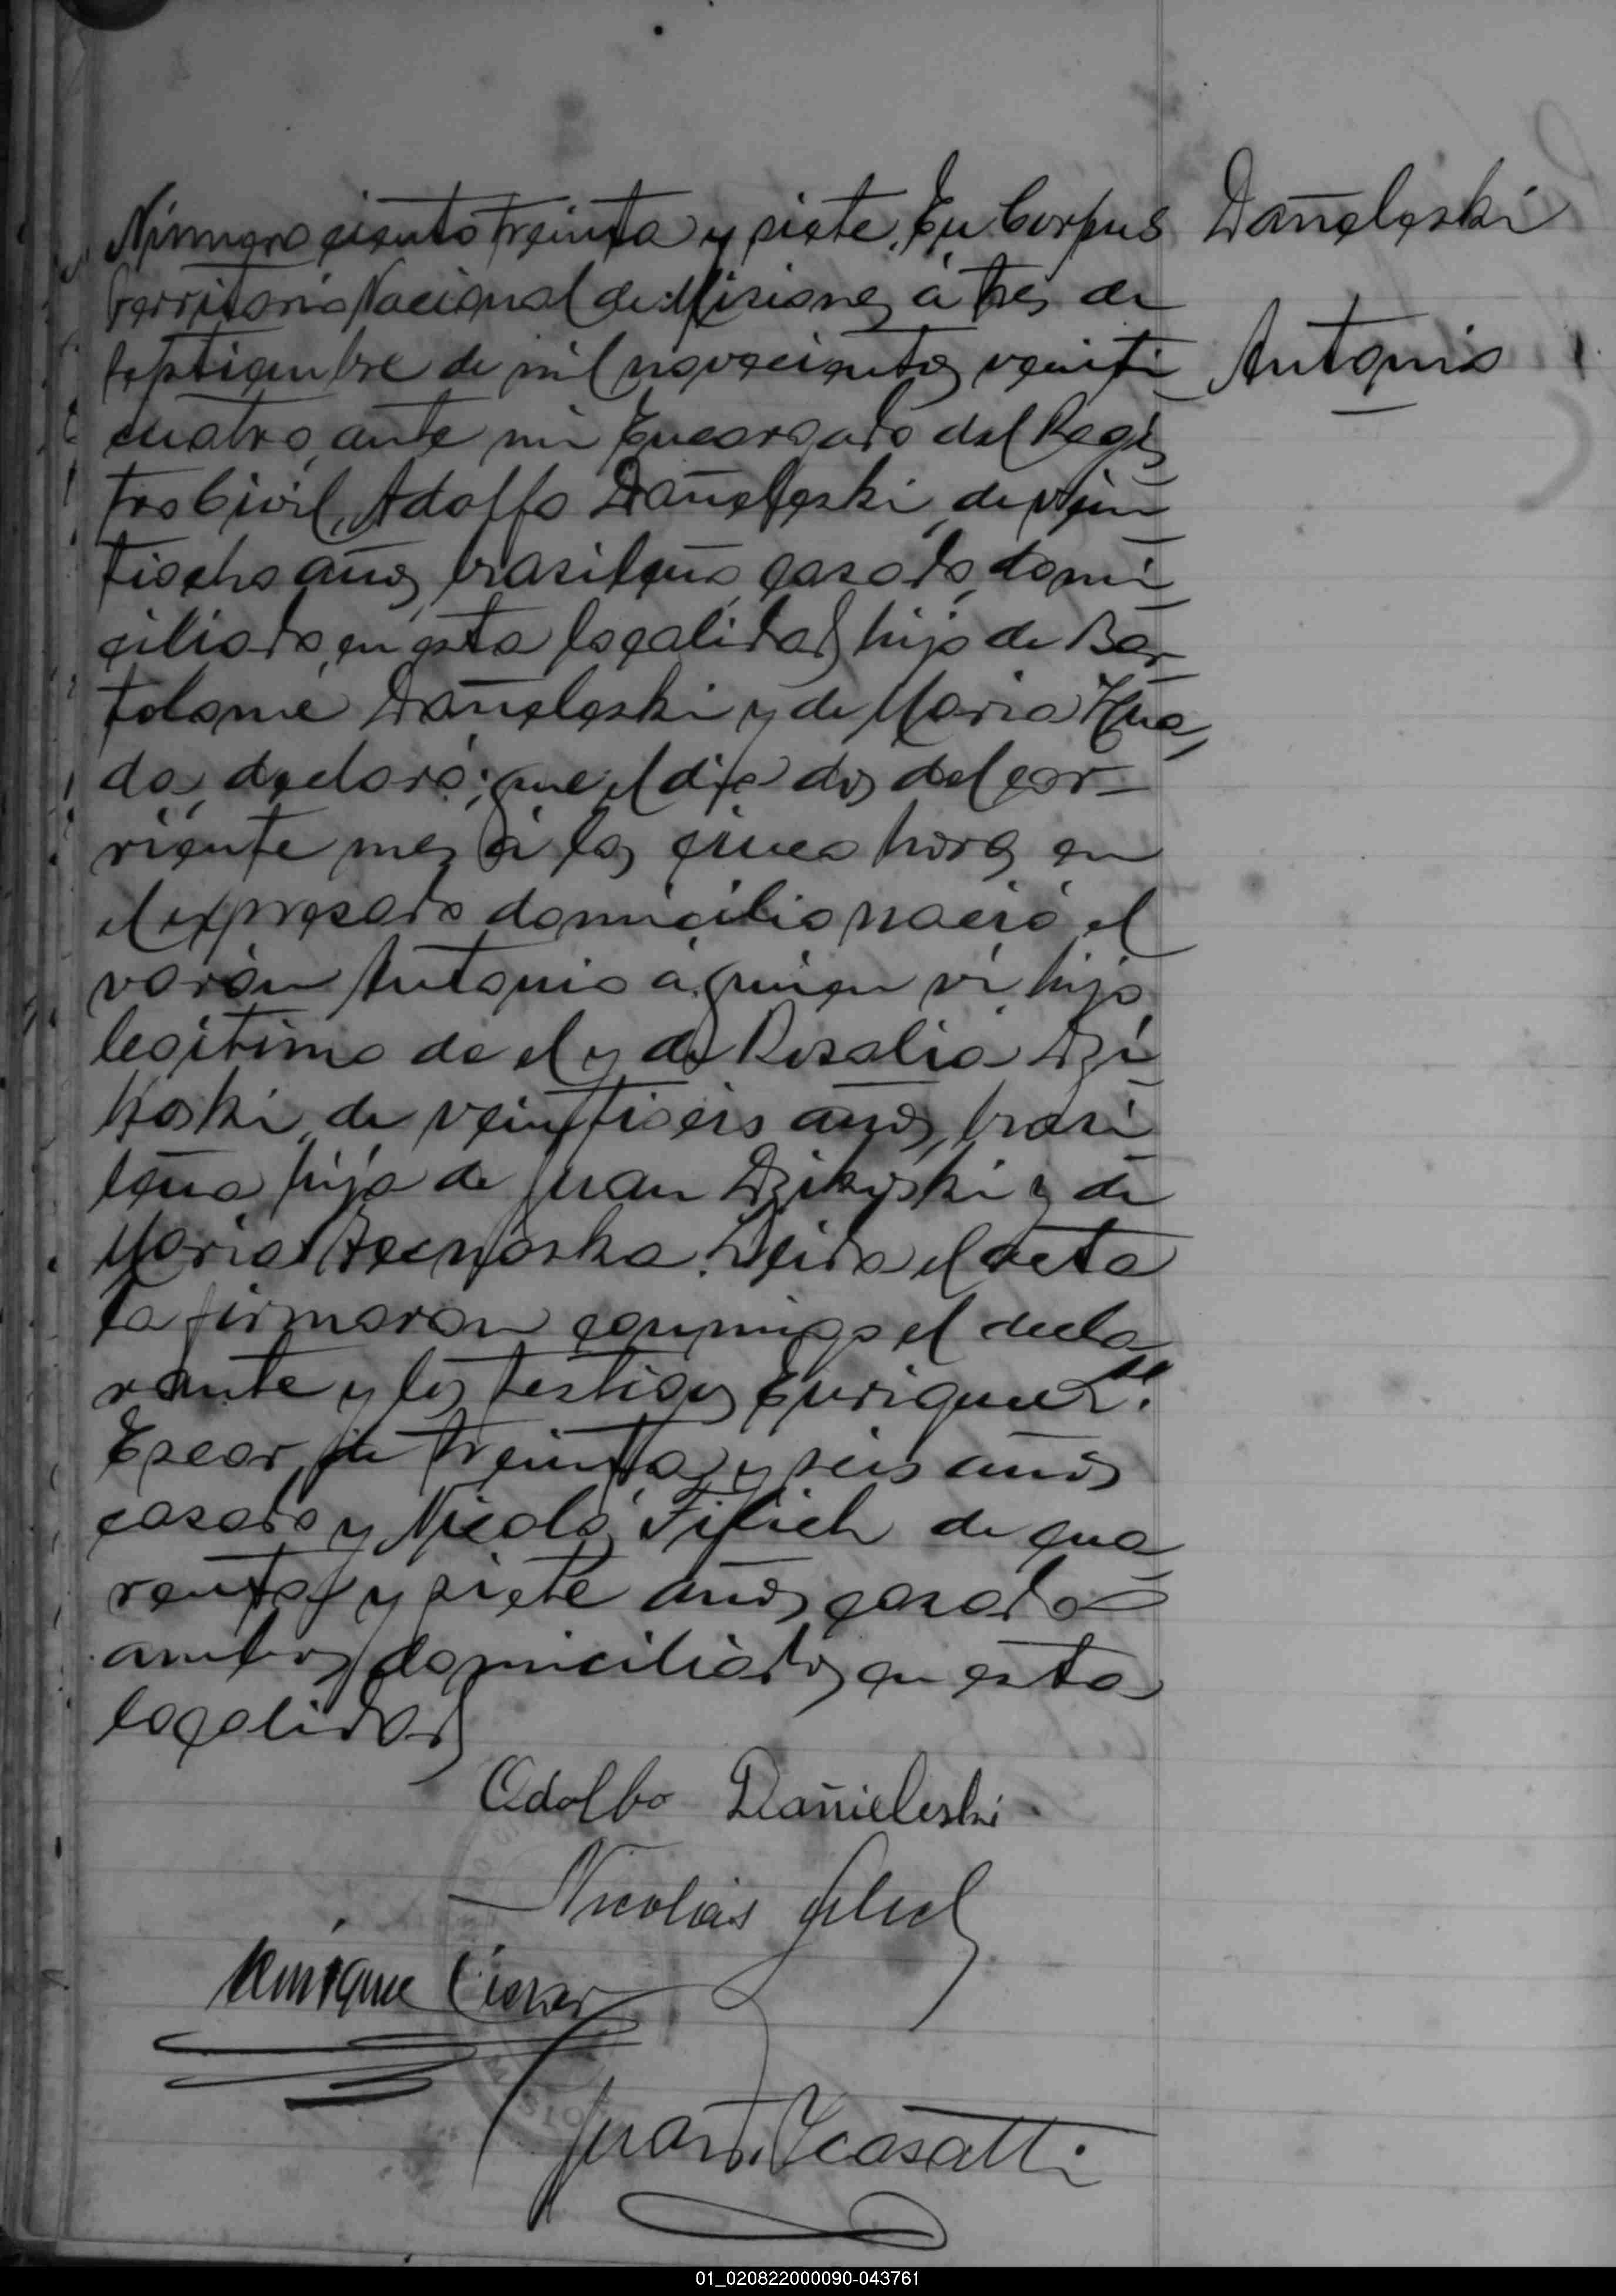 Número ciento treinta y siete. En Corpus
Territorio Nacional de Misiones á tres de
septiembre de mil novecientos veinti
cuatro, ante mi Encargado del Regis
tro Civil, Adolfo Dañeleski, de vein
tiocho años, brasileño, casado, domi
ciliado en esta localidad, hijo de Bar
tolomé Dañeleski y de Maria
da, declaró; que el dia dos del cor
riente mes á las cinco horas en
el expresado domicilio nació el
varón Antonio á quien vi hijo
legítimo de el y de Rosalia Dzi
koski, de veintiseis años, brasi
leña hija de Juan Dzikoski y de
Maria Leida el acta
la firmaron conmigo el decla
rante y los testigos Enrique
Escar, de treinta y seis años
casado y Nicolás Filich de cua
renta y siete años, casado
ambos domiciliados en esta
localidad
Dañeleski
Antonio
Adolfo Dañieleski
Nicolás Filich
Enrique Escar
Juan Casatti
01_020822000090-043761